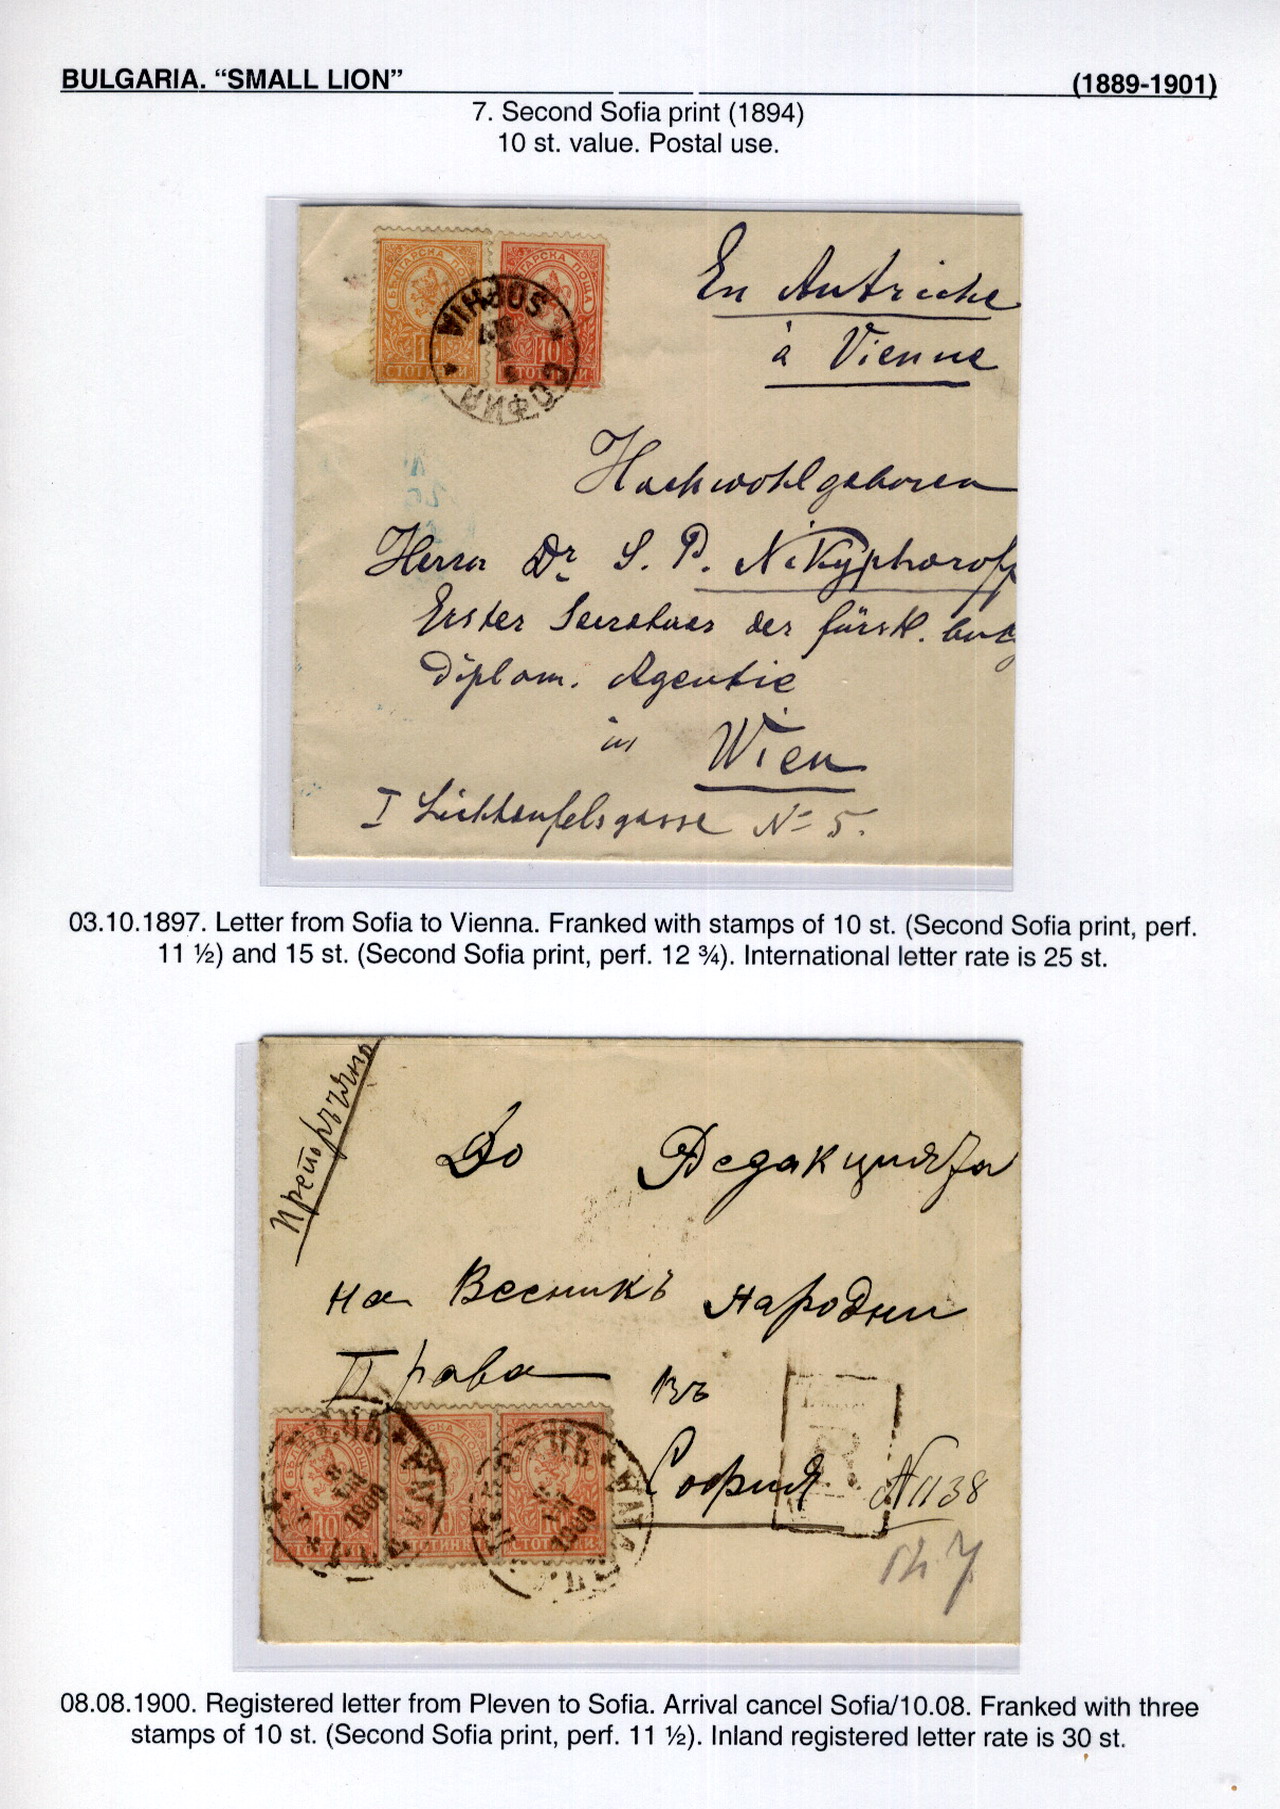 BULGARIA. “SMALL LION” (1889-1901)
7. Second Sofia print (1894)
10 st. value. Postal use.
БЪЛГАРСКА ПОЩА
15
СТОТИНКИ
БЪЛГАРСКА ПОЩА
10
СТОТИНКИ
SOPHIA
СОФИЯ
En Autriche
à Vienne
Hochwohlgeboren
Herrn Dr. S. P. Nikyphoroff
Erster Secretaer der fürstl. bulg
Diplom. Agentie
in Wien
I Lichtenfelsgasse № 5.
03.10.1897. Letter from Sofia to Vienna. Franked with stamps of 10 st. (Second Sofia print, perf.
11 ½) and 15 st. (Second Sofia print, perf. 12 ¾). International letter rate is 25 st.
Препоръчено
До Редакцията
на Весникъ Народни
Права въ
София
R
N 1138
10
СТОТИНКИ
10
СТОТИНКИ
10
СТОТИНКИ
1900
1900
08.08.1900. Registered letter from Pleven to Sofia. Arrival cancel Sofia/10.08. Franked with three
stamps of 10 st. (Second Sofia print, perf. 11 ½). Inland registered letter rate is 30 st.